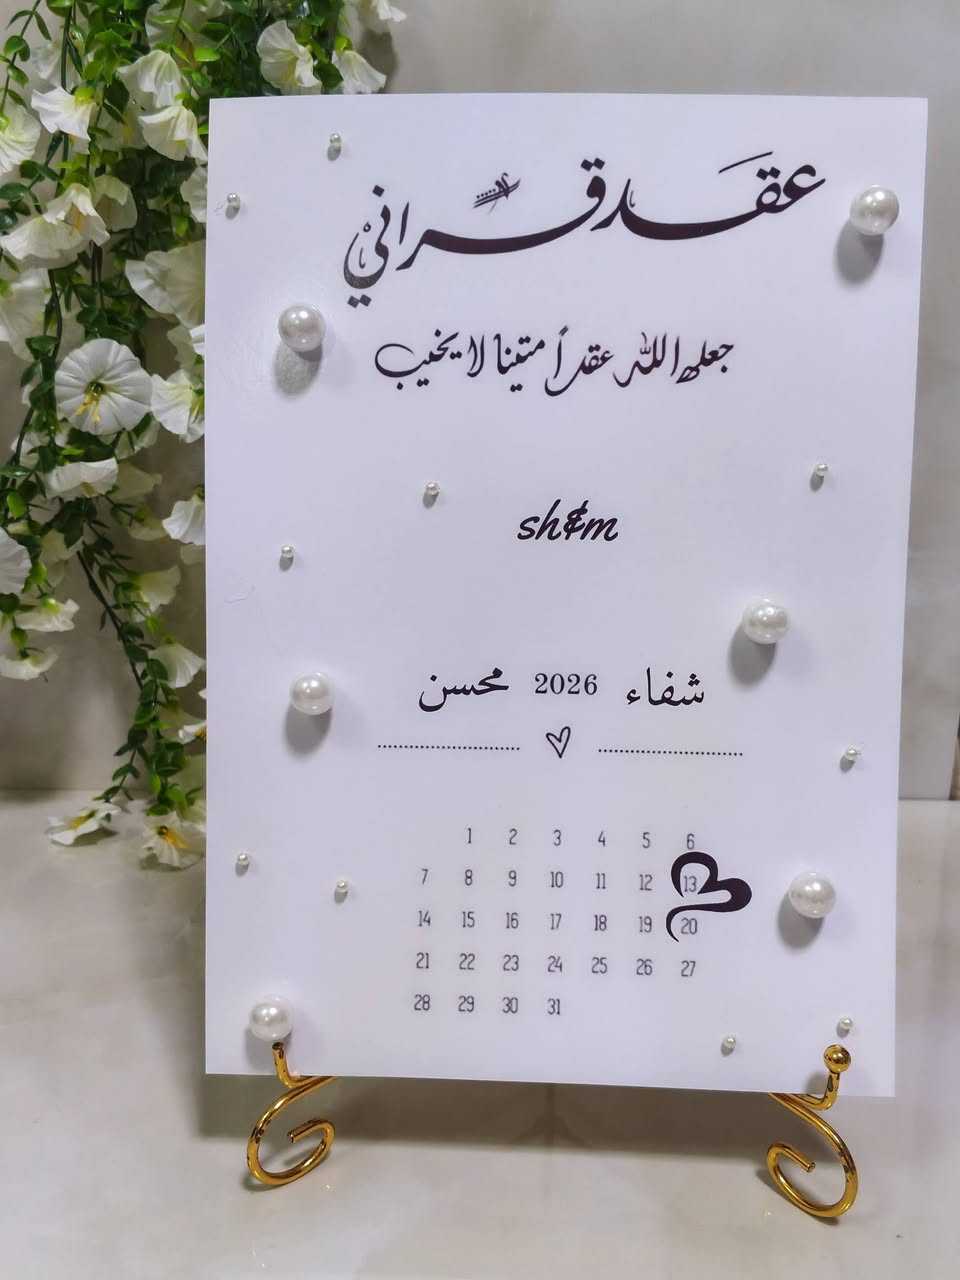 عقد قراني
جعله الله عقداً متينا لا يخيب
sh&m
شفاء 2026 محسن
1 2 3 4 5 6
7 8 9 10 11 12 13
14 15 16 17 18 19 20
21 22 23 24 25 26 27
28 29 30 31